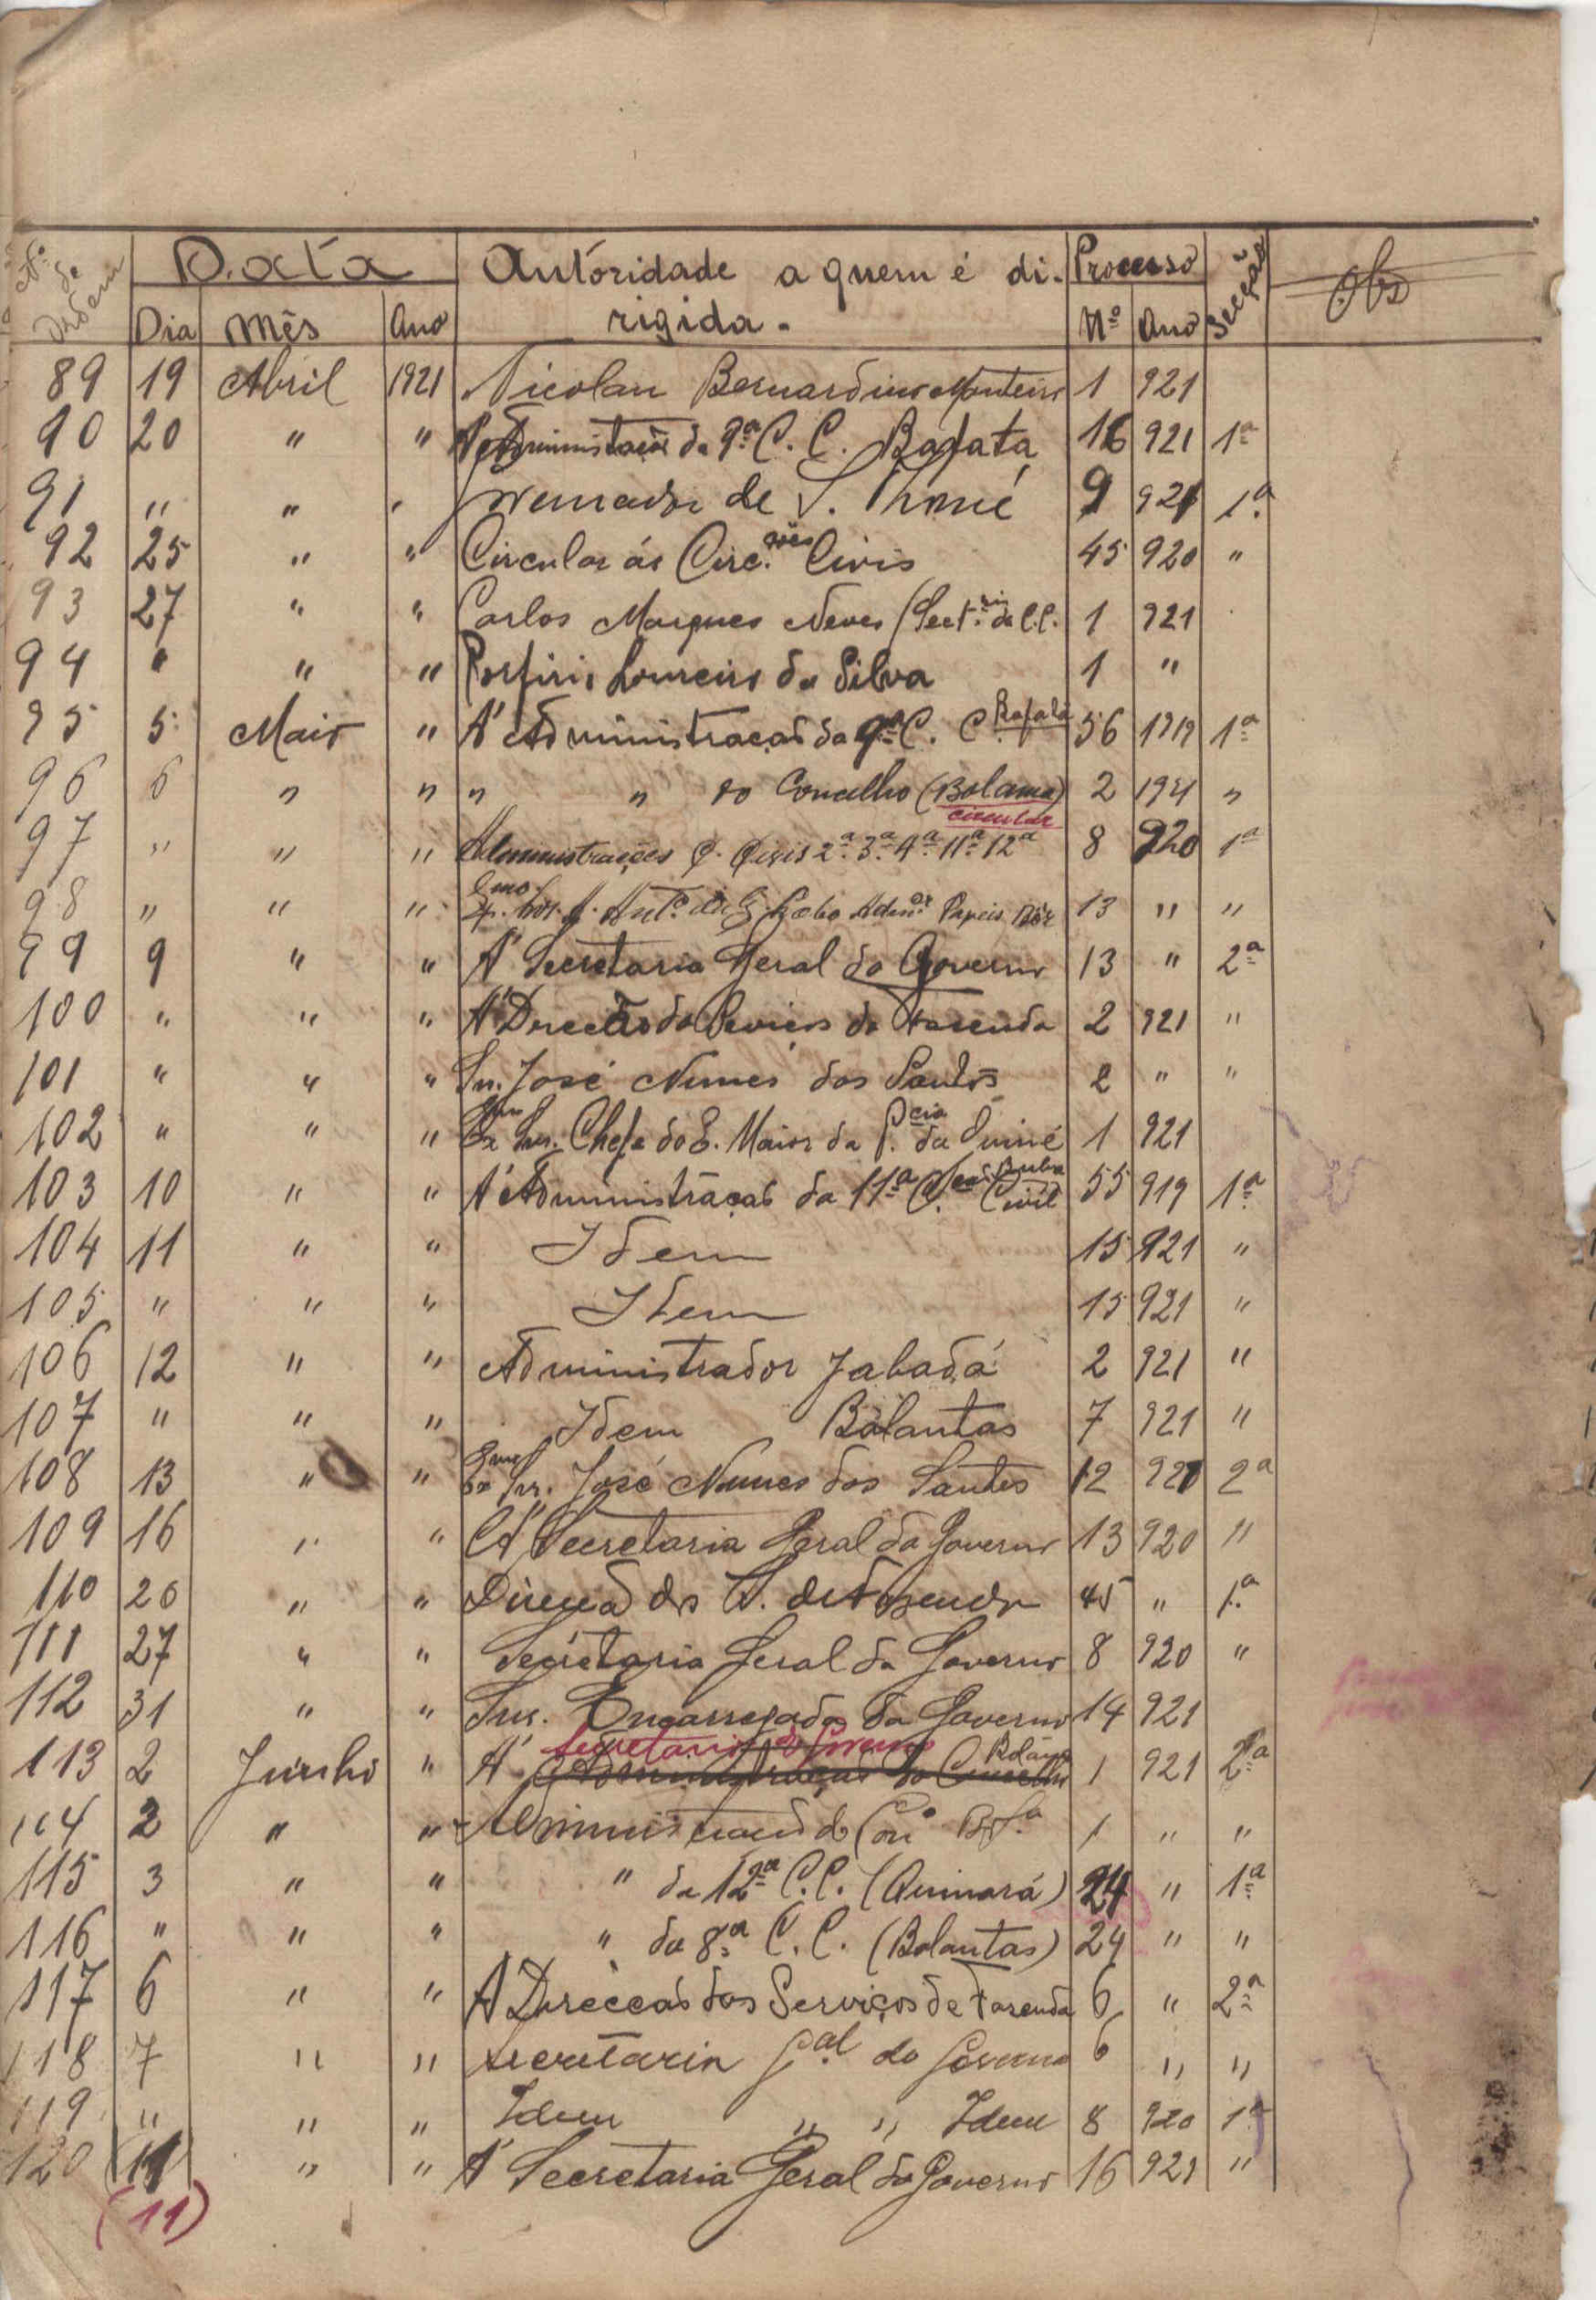 Nº de Ordem Data Autoridade a quem é di- Processo Secção Obs
Dia Mês Ano rigida. Nº Ano
89 19 Abril 1921 Nicolau Bernardino Monteiro 1 921
90 20 " " Administração da 9ª C. C. Bafata 16 921 1ª
91 " " " Governador de S. Thomé 9 921 1ª
92 25 " " Circular ás Circ.ções Civis 45 920 "
93 27 " " Carlos Marques Neves (Secr.rio da C.C. 1 921
94 " " " Porfirio Loureiro da Silva 1 "
95 5 Maio " A' Administração da 9ª C. C. Bafatá 56 1919 1ª
96 6 " " " " do Concelho (Bolama) 2 1921 "
circular
97 " " " Administrações C. Civis 2ª 3ª 4ª 11ª 12ª 8 920 1ª
98 " " " Papeis 13 " "
99 9 " " A' Secretaria Geral do Governo 13 " 2ª
100 " " " A' Direcção do Serviços de Fazenda 2 921 "
101 " " " Snr. José Nunes dos Santos 2 " "
102 " " " Exmo Snr. Chefe do E. Maior da P.cia da Guiné 1 921
103 10 " " A' Administração da 11ª C.cão Civil Buba 55 919 1ª
104 11 " " Idem 15 921 "
105 " " " Idem 15 921 "
106 12 " " Administrador Jabadá 2 921 "
107 " " " Idem Balantas 7 921 "
108 13 " " Exmo Snr. José Nunes dos Santos 12 920 2ª
109 16 " " A' Secretaria Geral do Governo 13 920 "
110 20 " " Direcção dos S. de Fazenda 45 " 1ª
111 27 " " Secretaria Geral do Governo 8 920 "
112 31 " " Snr. Encarregado do Governo 14 921
Secretaria do Governo
113 2 Junho " A' Administração do Concelho Bolama 1 921 2ª
114 2 " " Administração do Con.º 1 " "
115 3 " " " da 12ª C.C. (Quinará) 24 " 1ª
116 " " " " da 8ª C.C. (Balantas) 24 " "
117 6 " " A' Direcção dos Serviços de Fazenda 6 " 2ª
118 7 " " Secretaria G.al do Governo 6 " "
119 " " " Idem " " Idem 8 920 1ª
120 11 " " A' Secretaria Geral do Governo 16 921 "
(11)